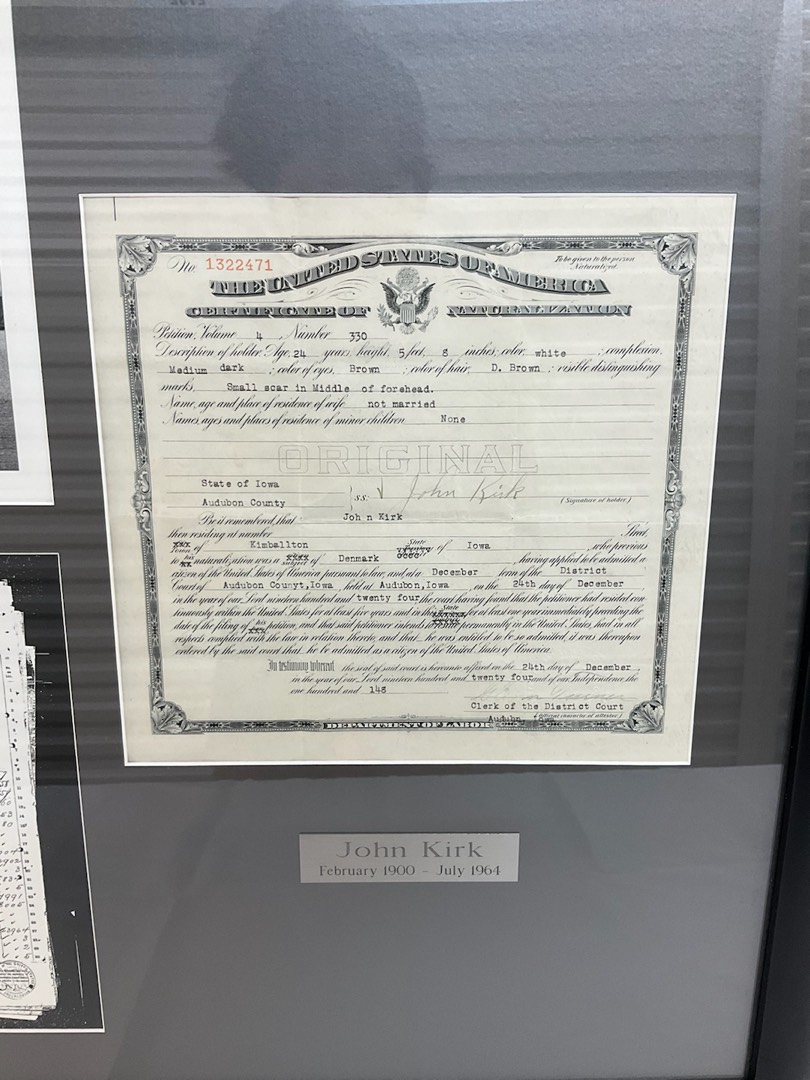 No. 1322471
To be given to the person
Naturalized.
THE UNITED STATES OF AMERICA
CERTIFICATE OF NATURALIZATION
Petition, Volume 4, Number 330
Description of holder. Age, 24 years; height, 5 feet, 8 inches; color, white ; complexion,
Medium dark ; color of eyes, Brown ; color of hair, D. Brown ; visible distinguishing
marks, Small scar in Middle of forehead.
Name, age and place of residence of wife not married
Names, ages and places of residence of minor children None
ORIGINAL
State of Iowa
Audubon County
ss:
John Kirk
(Signature of holder.)
Be it remembered, that Joh n Kirk
then residing at number Street,
xxx Town of Kimballton State of Iowa , who previous
to his naturalization was a subject of Denmark , having applied to be admitted a
citizen of the United States of America pursuant to law, and at a December term of the District
Court of Audubon Counyt, Iowa held at Audubon, Iowa , on the 24th day of December
in the year of our Lord nineteen hundred and twenty four the court having found that the petitioner had resided con-
tinuously within the United States for at least five years and in this State for at least one year immediately preceding the
date of the filing of his petition, and that said petitioner intends to reside permanently in the United States, had in all
respects complied with the law in relation thereto, and that he was entitled to be so admitted, it was thereupon
ordered by the said court that he be admitted as a citizen of the United States of America.
In testimony whereof the seal of said court is hereunto affixed on the 24th day of December
in the year of our Lord nineteen hundred and twenty four and of our Independence the
one hundred and 148
Clerk of the District Court
(Official character of attestor.)
DEPARTMENT OF LABOR
John Kirk
February 1900 - July 1964